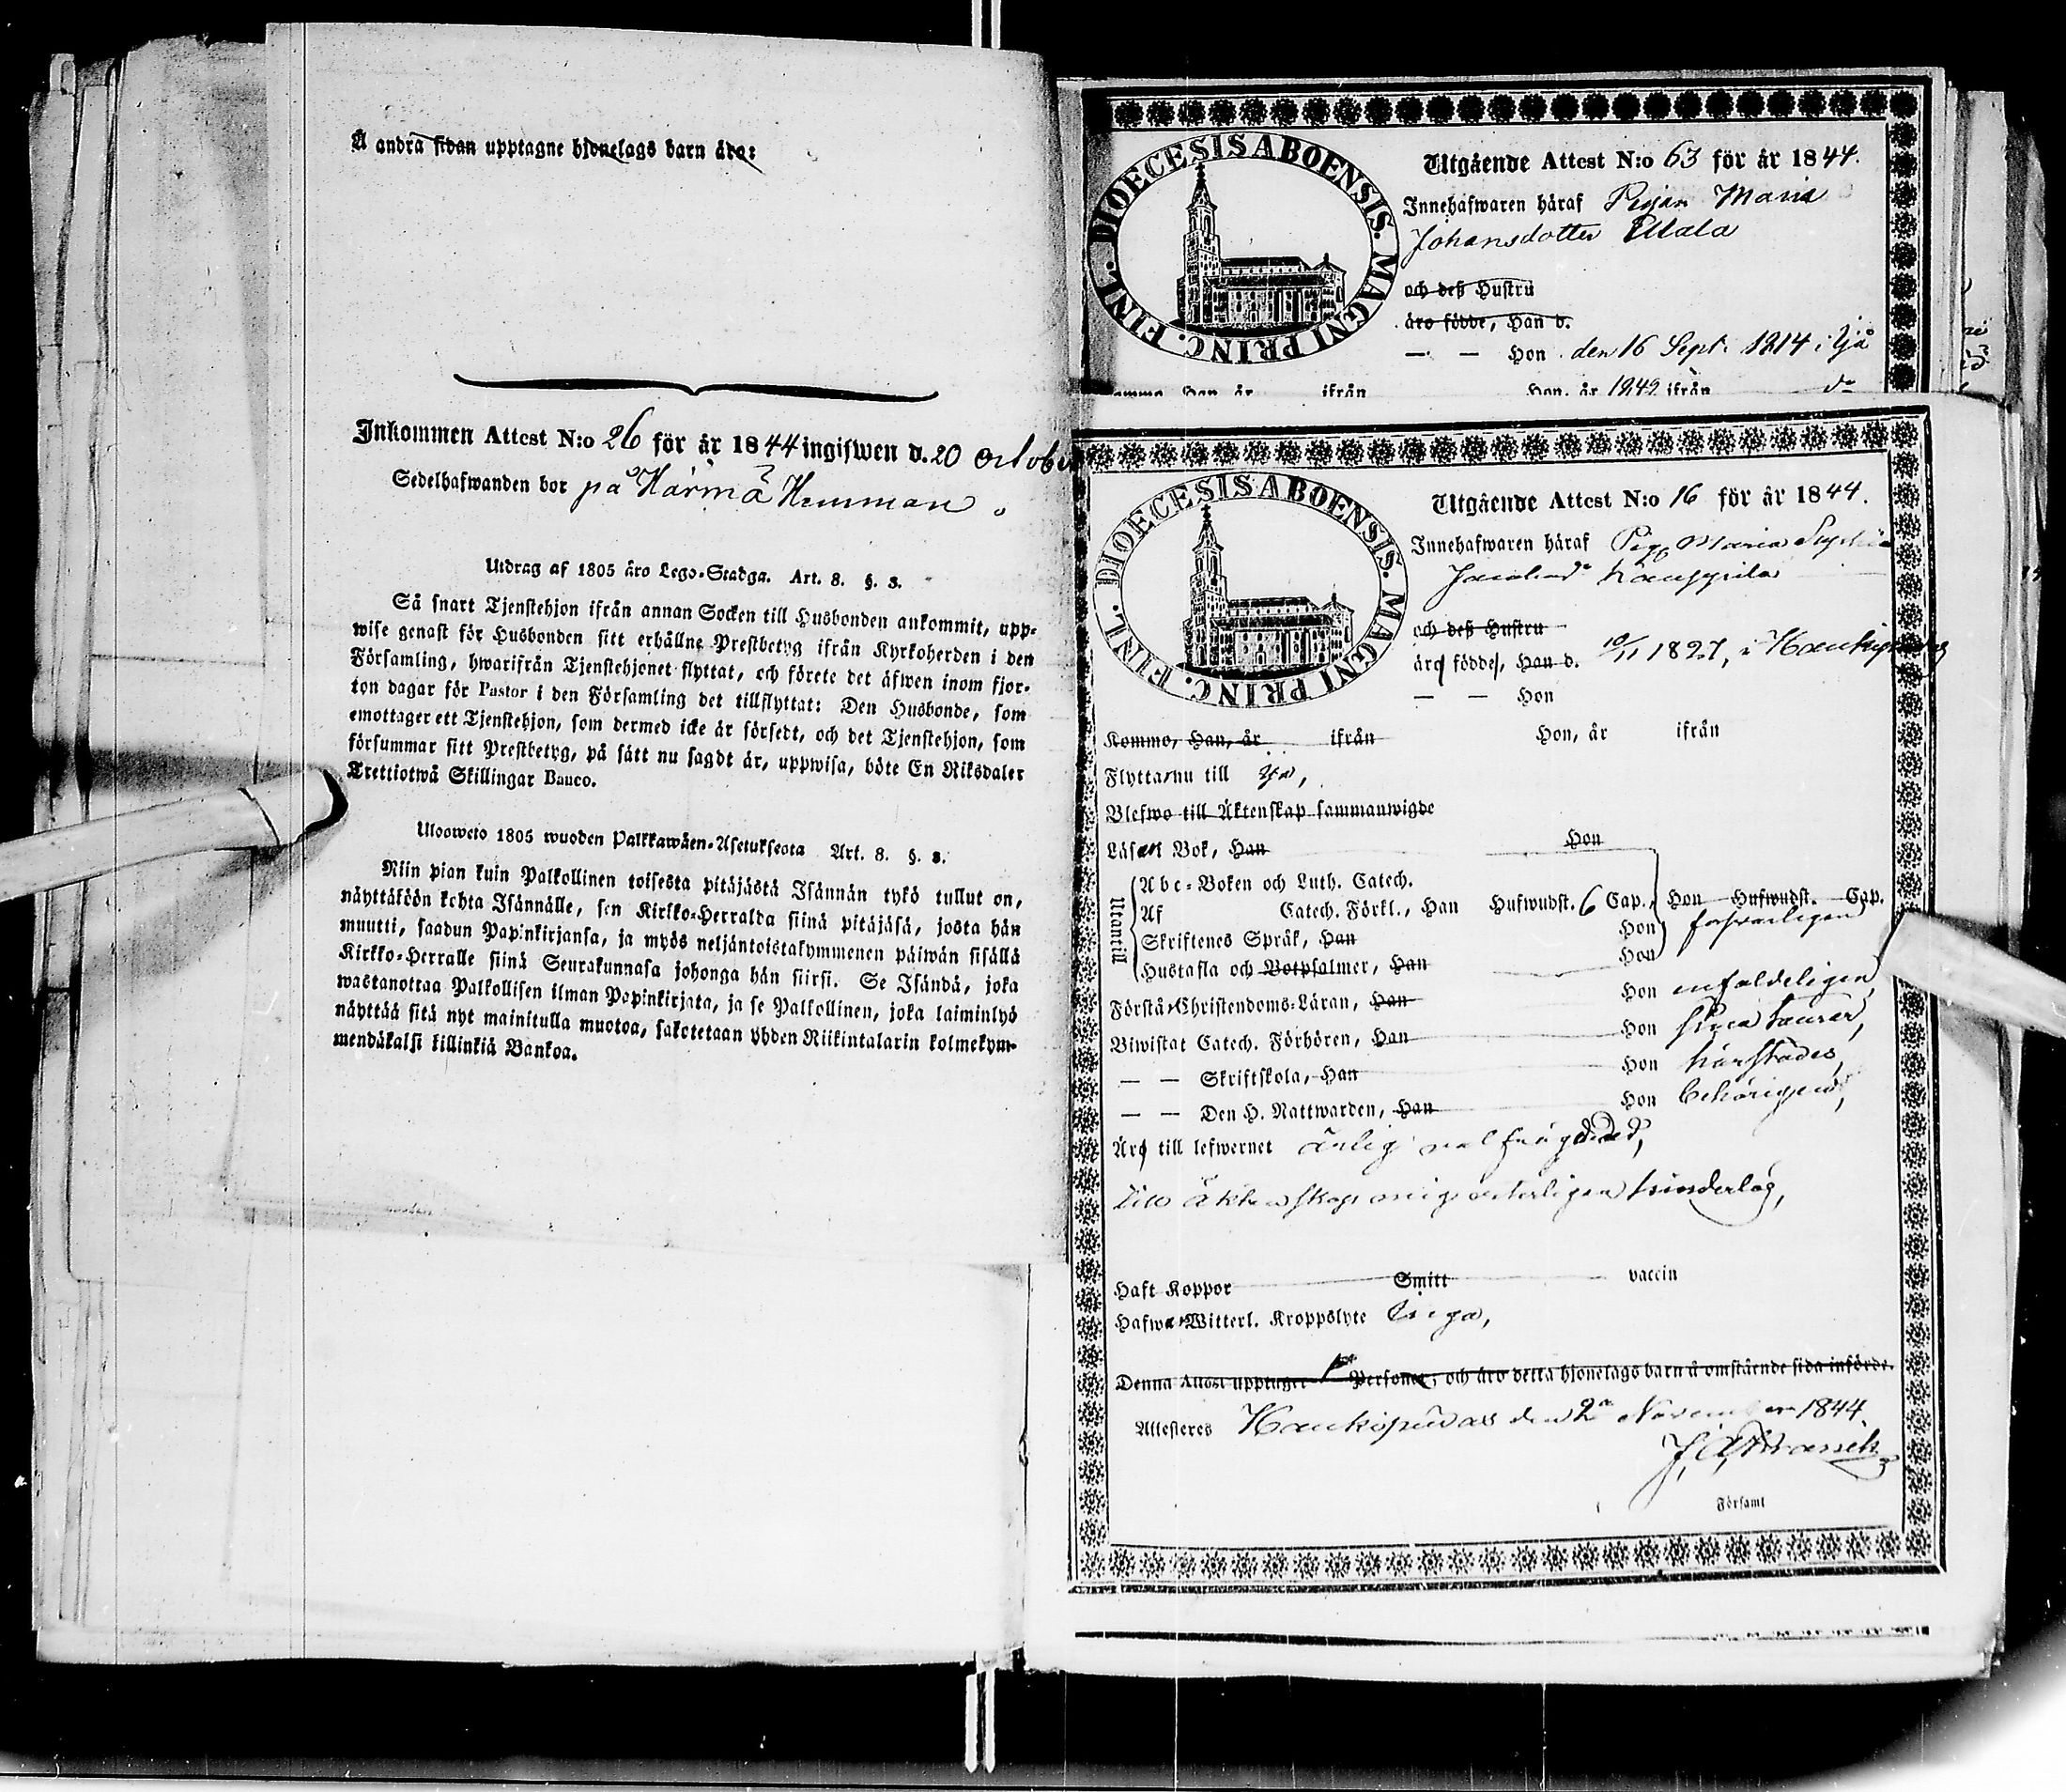 Å andra sidan upptagne hjonelags barn äro:
Inkommen Attest N:o 26 för år 1844 ingifwen d. 20 October
Sedelhafwanden bor på Härmä Hemman.
Utdrag af 1805 åro Lego-Stadga. Art. 8. §. 3.
Så snart Tjenstehjon ifrån annan Socken till Husbonden ankommit, upp-
wise genast för Husbonden sitt erhållne Prestbetyg ifrån Kyrkoherden i den
Församling, hwarifrån Tjenstehjonet flyttat, och förete det äfwen inom fjor-
ton dagar för Pastor i den Församling det tillflyttat: Den Husbonde, som
emottager ett Tjenstehjon, som dermed icke är försedt, och det Tjenstehjon, som
försummar sitt Prestbetyg, på sätt nu sagdt är, uppwisa, böte En Riksdaler
Trettiotwå Skillingar Banco.
Ulosweto 1805 wuoden Palkkawäen-Asetuksesta Art. 8. §. 3.
Niin pian kuin Palkollinen toisesta pitäjästä Isännän tykö tullut on,
näyttäköön kohta Isännälle, sen Kirkko-Herralda siinä pitäjäsä, josta hän
muutti, saadun Papinkirjansa, ja myös neljäntoistakymmenen päiwän sisällä
Kirkko-Herralle siinä Seurakunnasa johonga hän siirsi. Se Isändä, joka
wastanottaa Palkollisen ilman Papinkirjata, ja se Palkollinen, joka laiminlyö
näyttää sitä nyt mainitulla muotoa, sakotetaan yhden Riikintalarin kolmekym-
mendäkaksi killinkiä Bankoa.
DIOECESIS ABOENSIS. MAGNI PRINC. FINL.
Utgående Attest N:o 63 för år 1844.
Innehafwaren häraf Pigan Maria
Johansdotter Ulala
och deß Hustru
äro födde, Han d.
— — Hon den 16 Sept. 1814 i Ijå
Han år ifrån Hon, år 1842 ifrån do
DIOECESIS ABOENSIS. MAGNI PRINC. FINL.
Utgående Attest N:o 16 för år 1844.
Innehafwaren häraf Pig. Maria Sophia
Jacobsdr Kauppila
och deß Hustru
äro födde, Han d. 10/11 1827, i Haukipudas
— — Hon
Kommo, Han, år ifrån Hon, år ifrån
Flytta nu till Ijo,
Blefwo till Äktenskap sammanwigde
Läsan Bok, Han Hon
Utantill
Abc-Boken och Luth. Catech.
Af Catech. Förkl., Han Hufwudst. 6 Cap. Hon Hufwudst. Cap.
Skriftenes Språk, Han Hon försvarligen
Hustafla och Botpsalmer, Han Hon
Förstå Christendoms-Läran, Han Hon enfaldeligen
Biwistat Catech. Förhören, Han Hon
— — Skriftskola, Han Hon härstädes,
— — Den H. Nattwarden, Han Hon behörigen,
Äro till lefwernet ärlig välfrägdad,
till äktenskap mig veterligen hinderlös,
Haft Koppor Smitt vaccin
Hafwa Witterl. Kroppslyte inga,
Denna Attest upptager 1 Personer, och äro detta hjonelags barn å omstående sida införde.
Attesteres Haukipudas den 2a November 1844
Församl